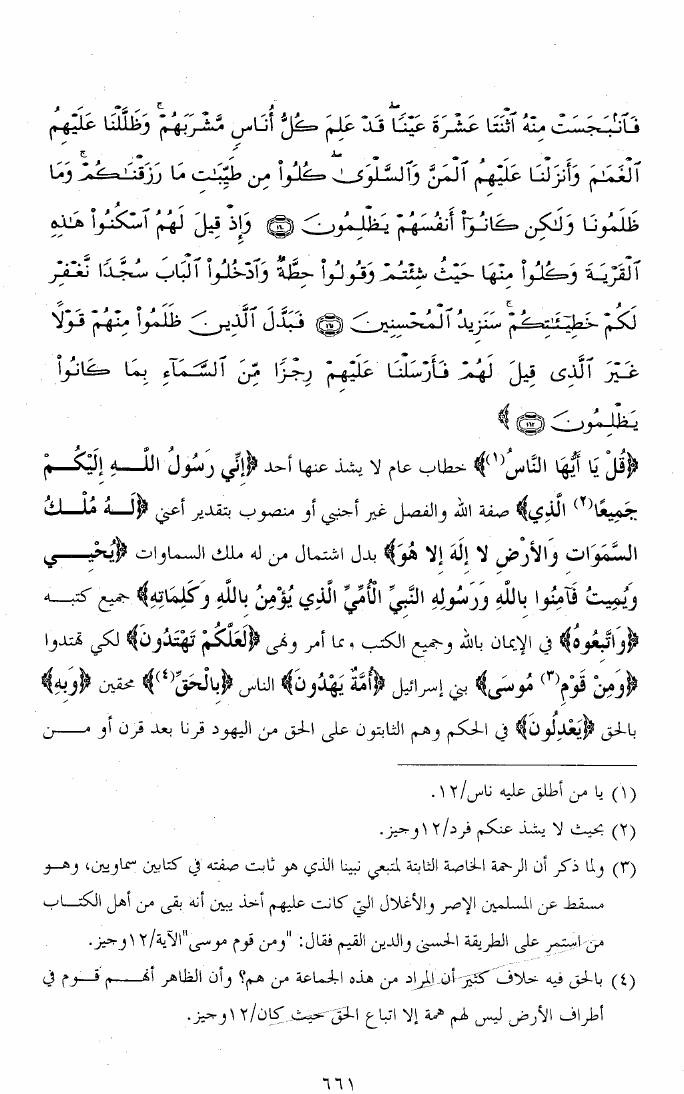 فَٱنۢبَجَسَتْ مِنْهُ ٱثْنَتَا عَشْرَةَ عَيْنًا ۖ قَدْ عَلِمَ كُلُّ أُنَاسٍ مَّشْرَبَهُمْ ۚ وَظَلَّلْنَا عَلَيْهِمُ
ٱلْغَمَٰمَ وَأَنزَلْنَا عَلَيْهِمُ ٱلْمَنَّ وَٱلسَّلْوَىٰ ۖ كُلُوا۟ مِن طَيِّبَٰتِ مَا رَزَقْنَٰكُمْ ۚ وَمَا
ظَلَمُونَا وَلَٰكِن كَانُوٓا۟ أَنفُسَهُمْ يَظْلِمُونَ ۝١٦٠ وَإِذْ قِيلَ لَهُمُ ٱسْكُنُوا۟ هَٰذِهِ
ٱلْقَرْيَةَ وَكُلُوا۟ مِنْهَا حَيْثُ شِئْتُمْ وَقُولُوا۟ حِطَّةٌ وَٱدْخُلُوا۟ ٱلْبَابَ سُجَّدًا نَّغْفِرْ
لَكُمْ خَطِيٓـَٰٔتِكُمْ ۚ سَنَزِيدُ ٱلْمُحْسِنِينَ ۝١٦١ فَبَدَّلَ ٱلَّذِينَ ظَلَمُوا۟ مِنْهُمْ قَوْلًا
غَيْرَ ٱلَّذِى قِيلَ لَهُمْ فَأَرْسَلْنَا عَلَيْهِمْ رِجْزًا مِّنَ ٱلسَّمَآءِ بِمَا كَانُوا۟
يَظْلِمُونَ ۝١٦٢ ﴾
﴿قُلْ يَا أَيُّهَا النَّاسُ(١)﴾ خطاب عام لا يشذ عنها أحد ﴿إِنِّي رَسُولُ اللَّهِ إِلَيْكُمْ
جَمِيعًا(٢) الَّذِي﴾ صفة الله والفصل غير أجنبي أو منصوب بتقدير أعني ﴿لَهُ مُلْكُ
السَّمَوَاتِ وَالأَرْضِ لا إِلَهَ إِلا هُوَ﴾ بدل اشتمال من له ملك السماوات ﴿يُحْيِي
وَيُمِيتُ فَآمِنُوا بِاللَّهِ وَرَسُولِهِ النَّبِيِّ الْأُمِّيِّ الَّذِي يُؤْمِنُ بِاللَّهِ وَكَلِمَاتِهِ﴾ جميع كتبه
﴿وَاتَّبِعُوهُ﴾ في الإيمان بالله وجميع الكتب وبما أمر ونهى ﴿لَعَلَّكُمْ تَهْتَدُونَ﴾ لكي تهتدوا
﴿وَمِنْ قَوْمِ(٣) مُوسَى﴾ بني إسرائيل ﴿أُمَّةٌ يَهْدُونَ﴾ الناس ﴿بِالْحَقِّ(٤)﴾ محقين ﴿وَبِهِ﴾
بالحق ﴿يَعْدِلُونَ﴾ في الحكم وهم الثابتون على الحق من اليهود قرنا بعد قرن أو من
(١) يا من أطلق عليه ناس/١٢.
(٢) بحيث لا يشذ عنكم فرد/١٢وجيز.
(٣) ولما ذكر أن الرحمة الخاصة الثابتة لمتبعي نبينا الذي هو ثابت صفته في كتابين سماويين، وهو
مسقط عن المسلمين الإصر والأغلال التي كانت عليهم أخذ يبين أنه بقى من أهل الكتاب
من استمر على الطريقة الحسنى والدين القيم فقال: "ومن قوم موسى"الآية/١٢وجيز.
(٤) بالحق فيه خلاف كثير أن المراد من هذه الجماعة من هم؟ وأن الظاهر أنهم قوم في
أطراف الأرض ليس لهم همة إلا اتباع الحق حيث كان/١٢وجيز.
٦٦١